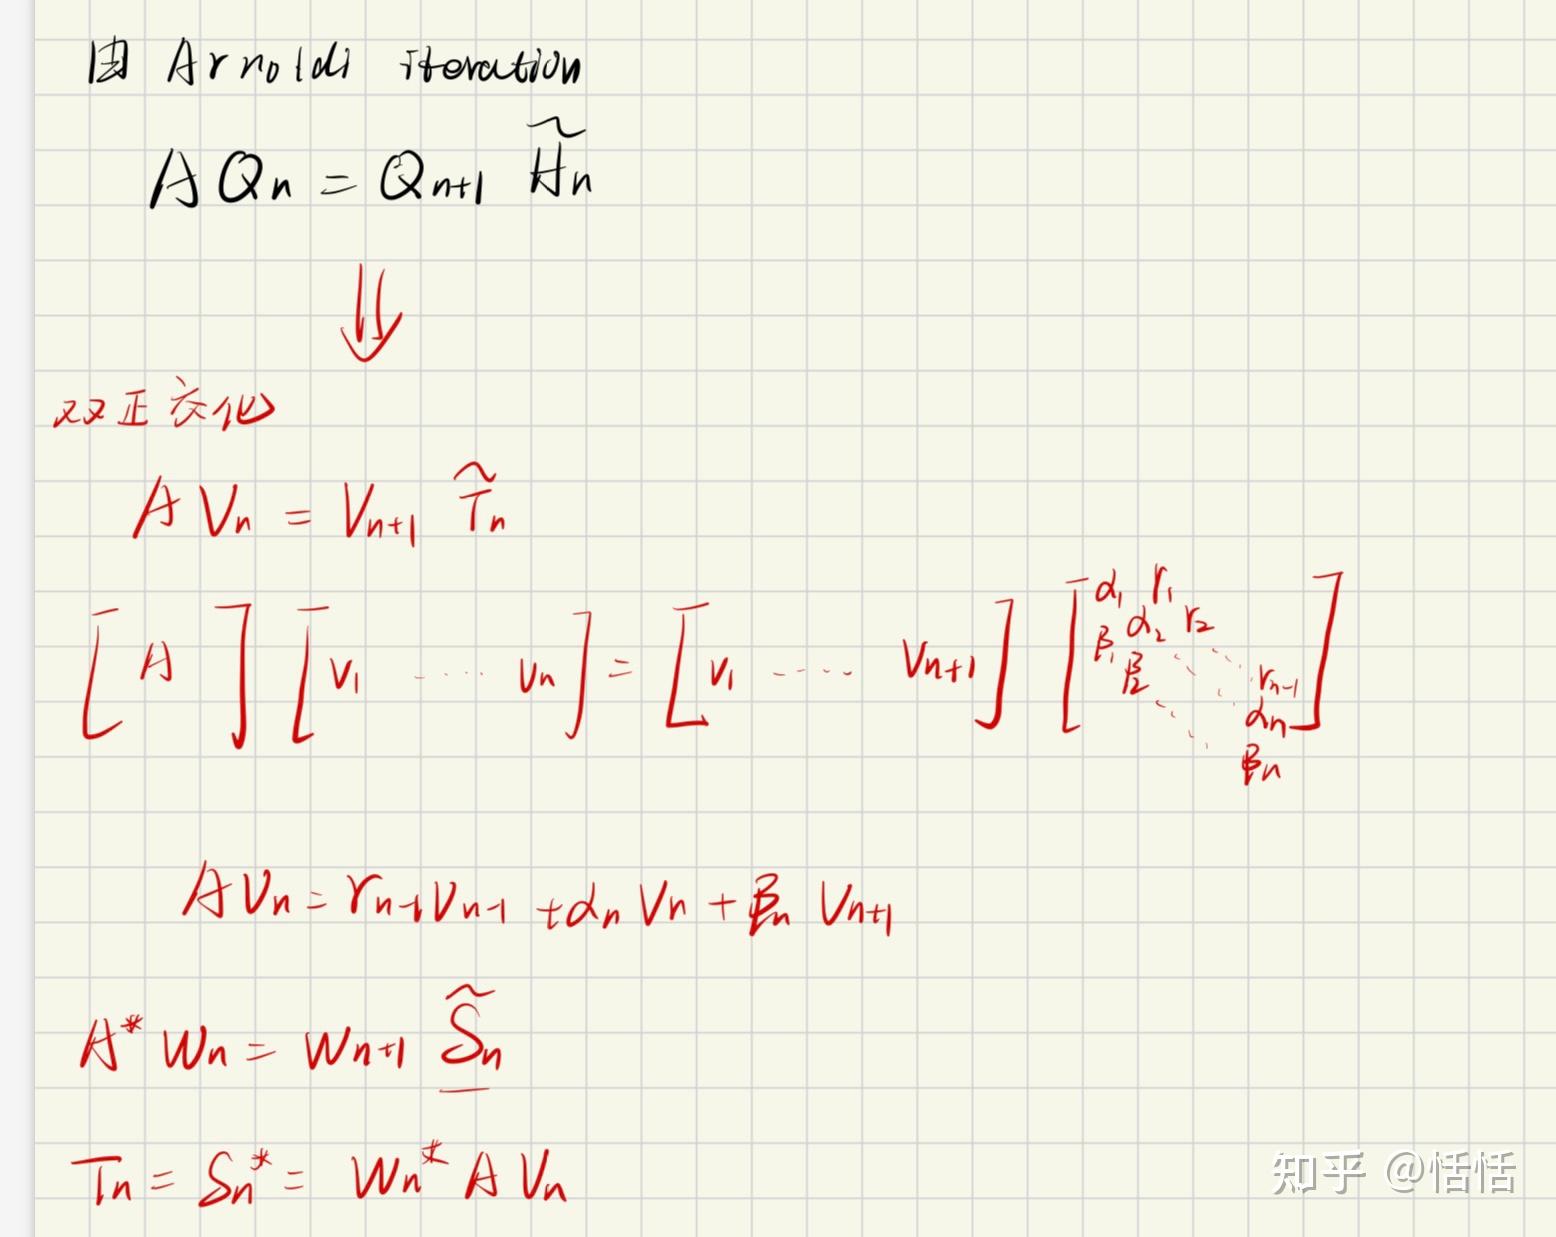 由 Arnoldi iteration
A Qn = Qn+1 H̃n
⇓
双正交化
A Vn = Vn+1 T̃n
[ A ] [ v1 ······ vn ] = [ v1 ······ vn+1 ] [ α1 r1 β1 α2 r2 β2 ······ rn-1 αn βn ]
A vn = rn-1 vn-1 + αn vn + βn vn+1
A* Wn = Wn+1 S̃n
Tn = Sn* = Wn* A Vn
知乎 @恬恬